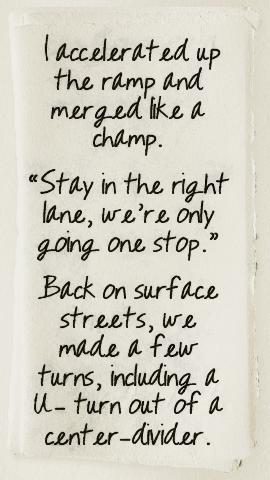 I accelerated up
the ramp and
merged like a
champ.
“Stay in the right
lane, we're only
going one stop.”
Back on surface
streets, we
made a few
turns, including a
U- turn out of a
center-divider.